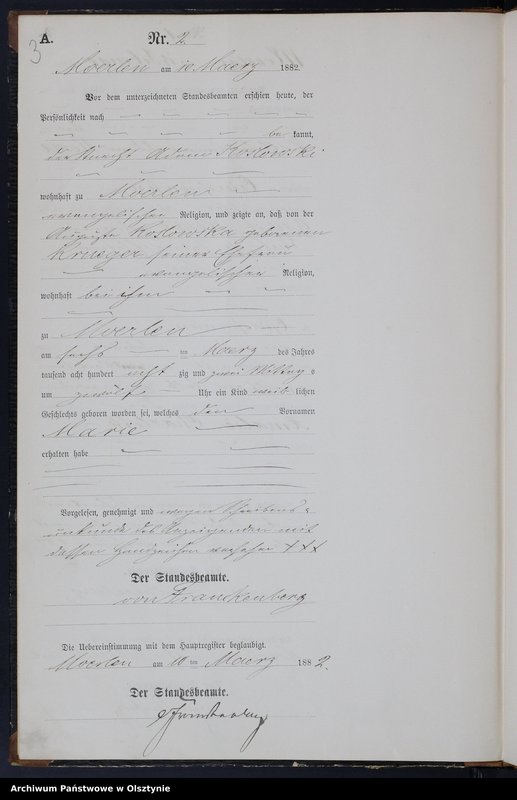 3
A.
Nr. 2.
Moerlen am 10. Maerz 1882.
Vor dem unterzeichneten Standesbeamten erschien heute, der
Persönlichkeit nach
be kannt,
der Knecht Adam Koslowski
wohnhaft zu Moerlen
evangelischer Religion, und zeigte an, daß von der
Auguste Koslowska geborenen
Krueger seiner Ehefrau
evangelischer Religion,
wohnhaft bei ihm
zu Moerlen
am sechs ten Maerz des Jahres
tausend acht hundert acht zig und zwei Mittag s
um zwölf Uhr ein Kind weib lichen
Geschlechts geboren worden sei, welches den Vornamen
Marie
erhalten habe
Vorgelesen, genehmigt und wegen Schreibens-
unkunde des Anzeigenden mit
dessen Handzeichen versehen +++
Der Standesbeamte.
von Franckenberg
Die Uebereinstimmung mit dem Hauptregister beglaubigt.
Moerlen am 10 ten Maerz 188 2.
Der Standesbeamte.
Archiwum Państwowe w Olsztynie